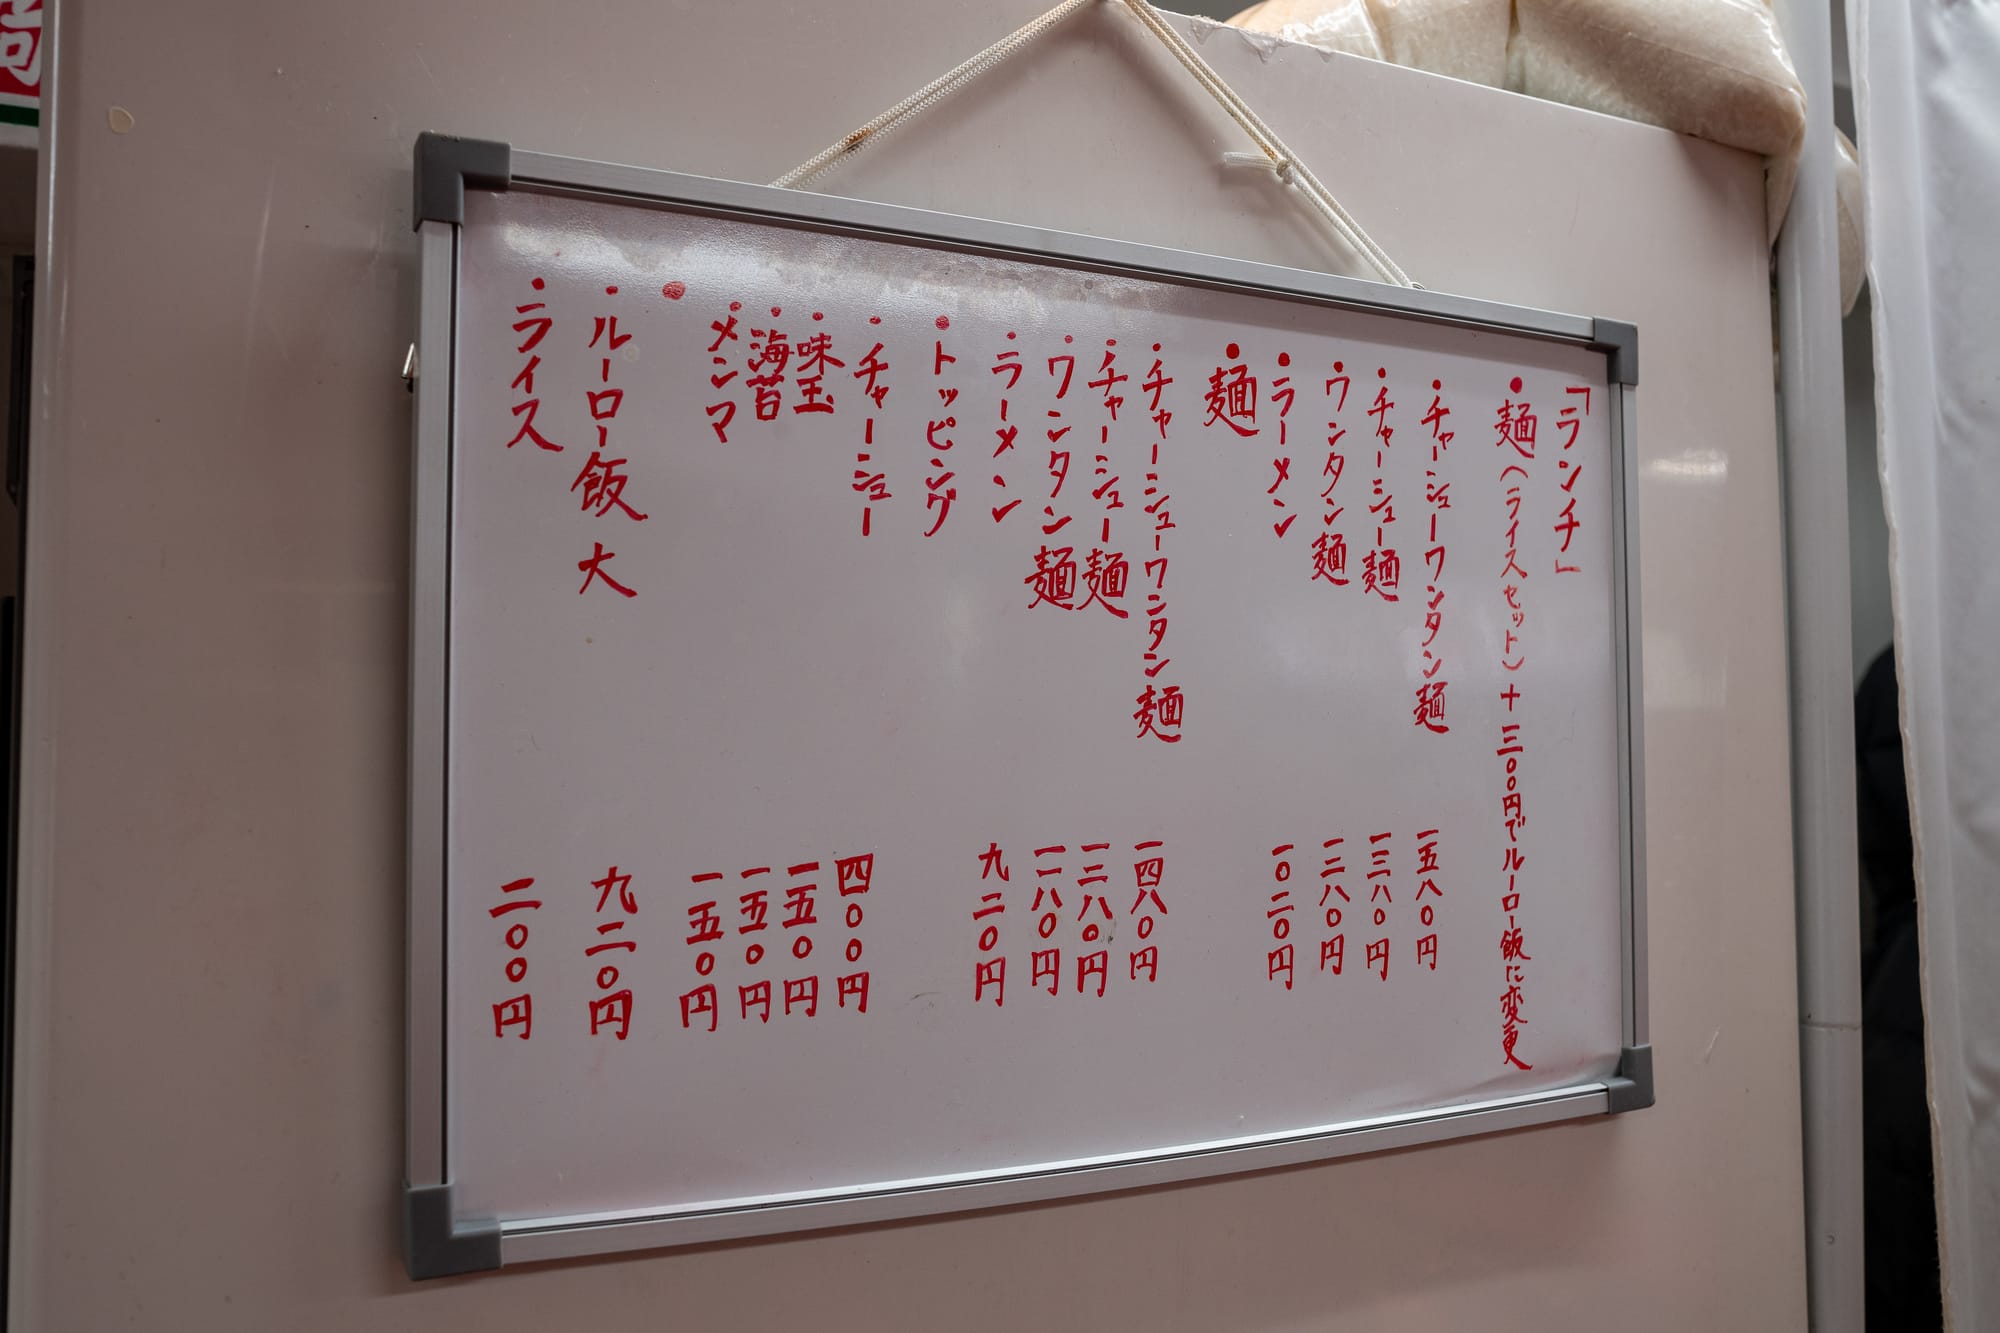 「ランチ」
●麺(ライスセット)+三〇〇円でルーロー飯に変更
・チャーシューワンタン麺 一五八〇円
・チャーシュー麺 一三八〇円
・ワンタン麺 一三八〇円
・ラーメン 一〇二〇円
●麺
・チャーシューワンタン麺 一四八〇円
・チャーシュー麺 一三八〇円
・ワンタン麺 一二八〇円
・ラーメン 九二〇円
●トッピング
・チャーシュー 四〇〇円
・味玉 一五〇円
・海苔 一五〇円
・メンマ 一五〇円
●
・ルーロー飯 大 九二〇円
・ライス 二〇〇円